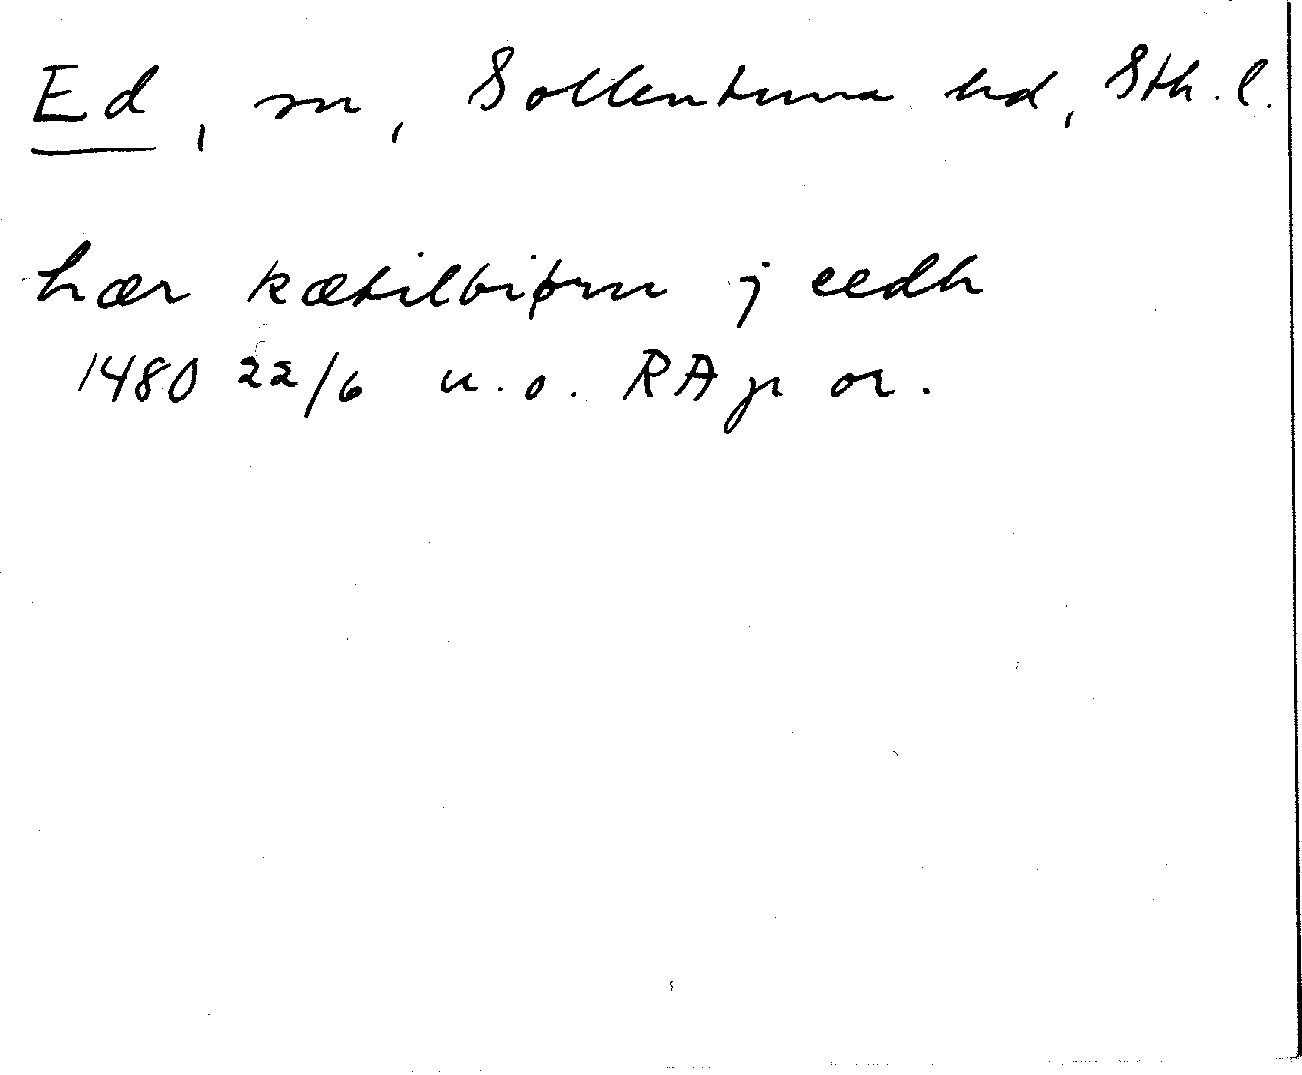 Ed, sn, Sollentuna hd, Sth. l.
hær kætilbiørn j eedh
1480 22/6 u.o. RAp or.